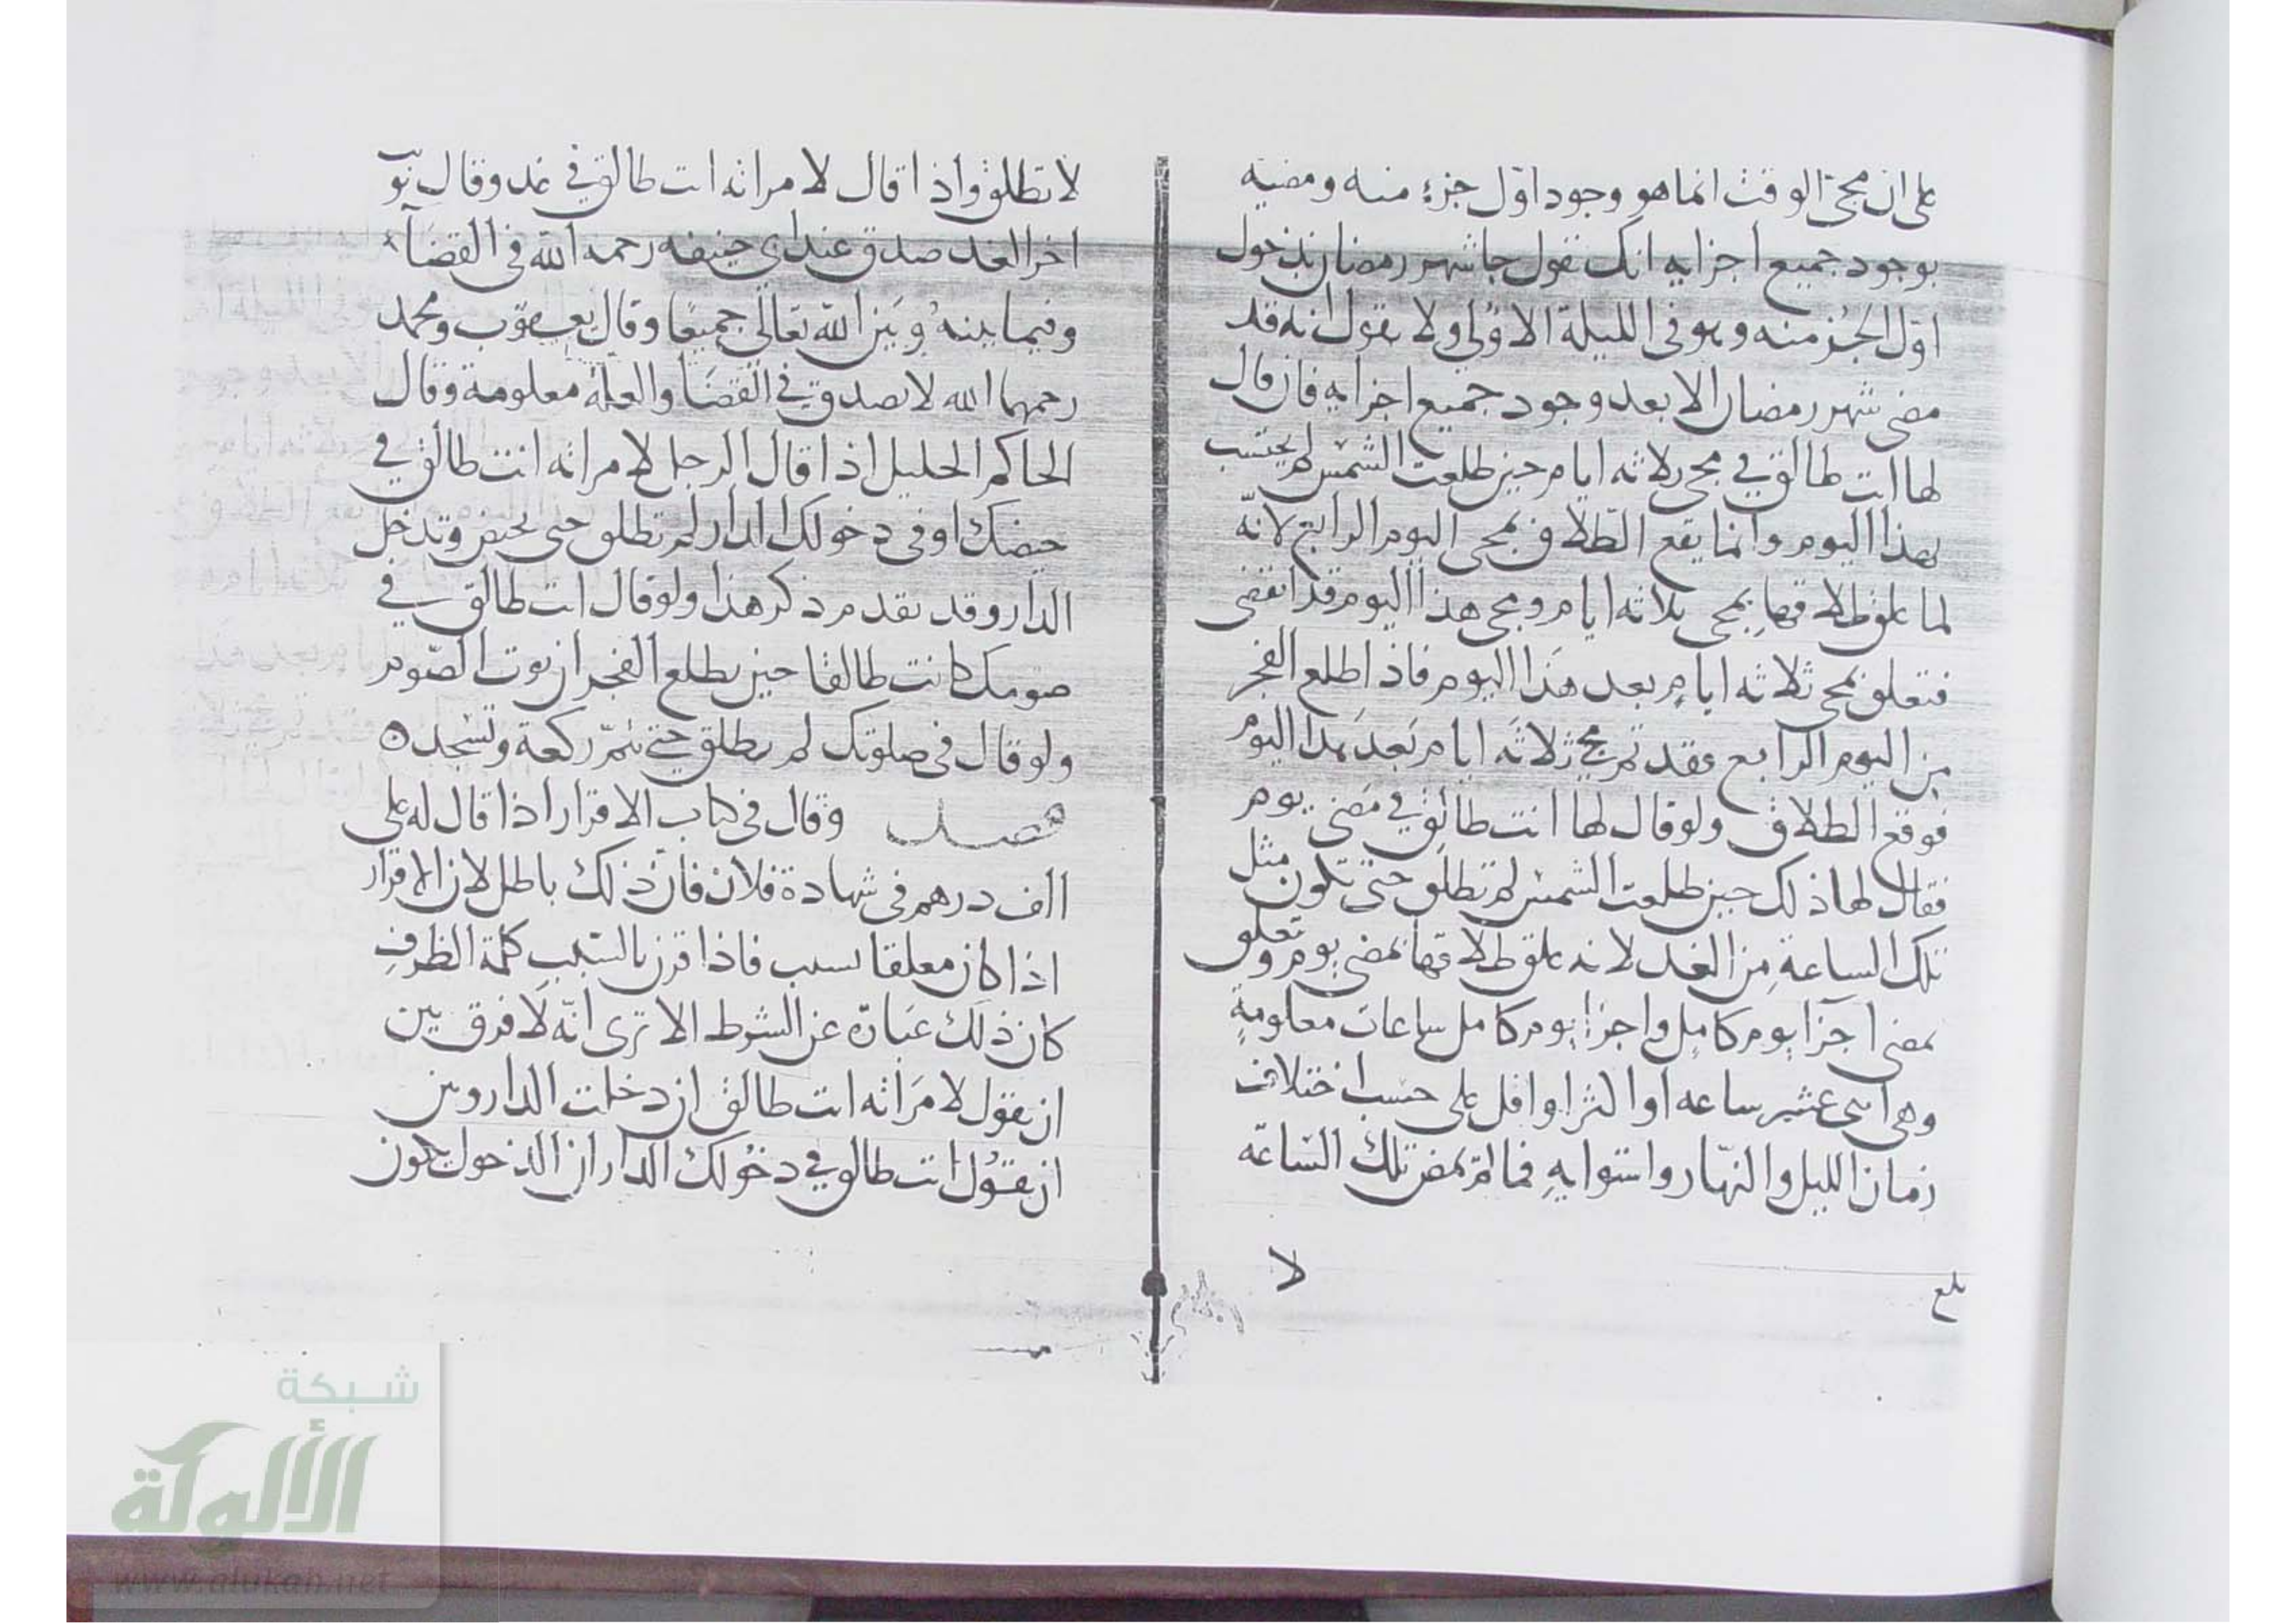 على ان مجئ الوقت انما هو وجود اوّل جزءٍ منه ومضيه
بوجود جميع اجزايه انك تقول جا شهر رمضان بدخول
اوّل الجُز منه وهو فى الليلة الاوُلي ولا يقول انه قد
مضى شهر رمضان الا بعد وجود جميع اجزايه فان قال
لها انت طالق في مجى ثلاثه ايام حين طلعت الشمس لم يحتسب
بهذا اليوم وانما يقع الطّلاق بمجى اليوم الرابع لانّه
لما علق طلاقها بمجى ثلاثه ايام ومجى هذا اليوم قد انقضى
فتعلق بمجى ثلاثه ايامٍ بعد هَذا اليوم فاذا طلع الفجر
من اليوم الرابع فقد تم مجئ ثلاثَه ايام بَعد هَذا اليوم
فوقع الطلاق ولو قال لها انت طالق في مَضى يوم
فقال لها ذلك حين طلعت الشمس لم تطلق حتّى تكون مثل
تلك الساعة مِن الغد لانه علق طلاقها بمضى يوم وتعلق
بمضى اجزآ يوم كامِل واجزا يوم كامل ساعات معلومةٍ
وهى اثنى عشر ساعه او اكثر او اقل على حسب اختلاف
زمان الليل والنّهار واستوايهِ فما لم تمض تلك السّاعَه
لا
بلغ
لا تطلق واذا قال لامراته انت طالق في غد وقال نويت
اخر الغد صدق عند ابي حنيفه رحمه الله فى القضآء
وفيما بينهُ وبَين الله تعالى جميعًا وقال يعقوب ومحمد
رحمهما الله لا يصدق في القضَا والعلة معلومة وقال
الحاكم الجليل اذا قال الرجل لامراته انت طالق في
حيضك او فى دخولك الدار لم تطلق حتى تحيض وتدخل
الدار وقد تقدم ذكر هذا ولو قال انت طالق في
صومك كانت طالقا حين يطلع الفجر ان نوت الصّوم
ولو قال فى صلوتك لم تطلق حتى تتمّ ركعة وتسْجد ه
فصل وقال فى كتاب الاقرار اذا قال له على
الف درهم فى شهادة فلان فان ذلك باطل لان الاقرار
اذا كان معلقا بسبب فاذا قرن بالسّبب كلمة الظرف
كان ذلك عبَارة عن الشرط الا ترى انّه لا فرق بين
ان يقول لامرَاته انت طالق ان دخلت الدار وبين
ان يقُول انت طالق في دخُولك الدار ان الدخول يكون
شبكة
الألوكة
www.alukah.net